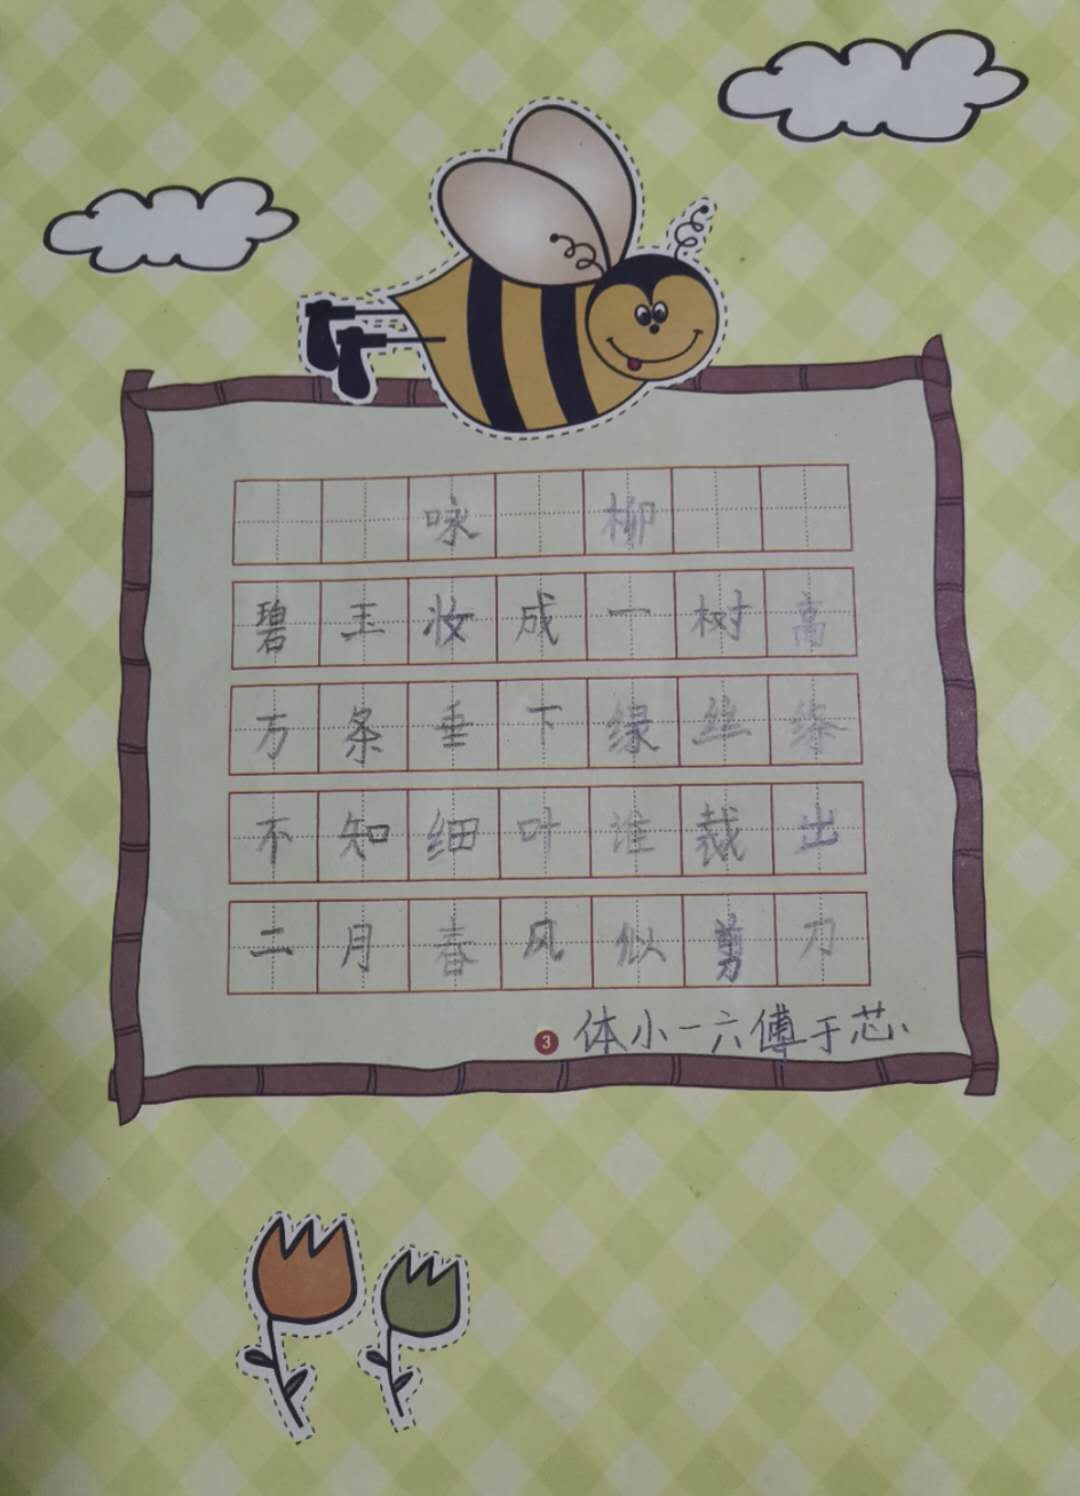 咏柳
碧玉妆成一树高
万条垂下绿丝绦
不知细叶谁裁出
二月春风似剪刀
3 体小一六傅于芯